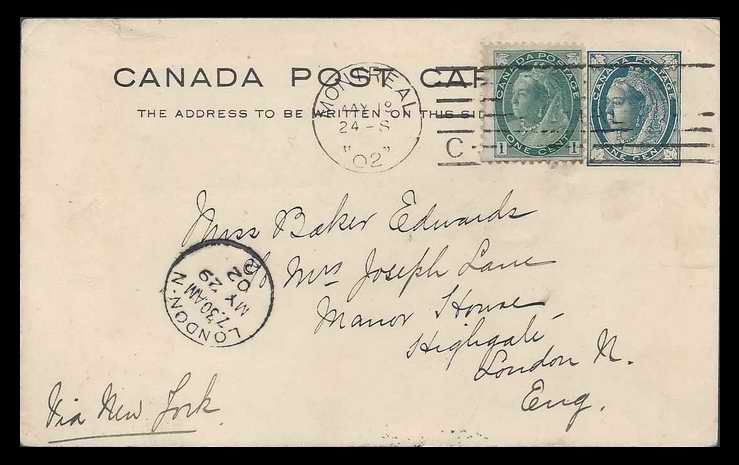 CANADA POST CAR
THE ADDRESS TO BE WRITTEN ON THIS SID
MONTREAL
MAY 18
24 - S
" 02 "
C
CANADA POSTAGE
1 ONE CENT 1
CANADA POSTAGE
ONE CENT
Miss Baker Edwards
c/o Mrs Joseph Lane
Manor House
Highgate
London N.
Eng.
LONDON. N
7.30 AM
MY 29
02
Via New York